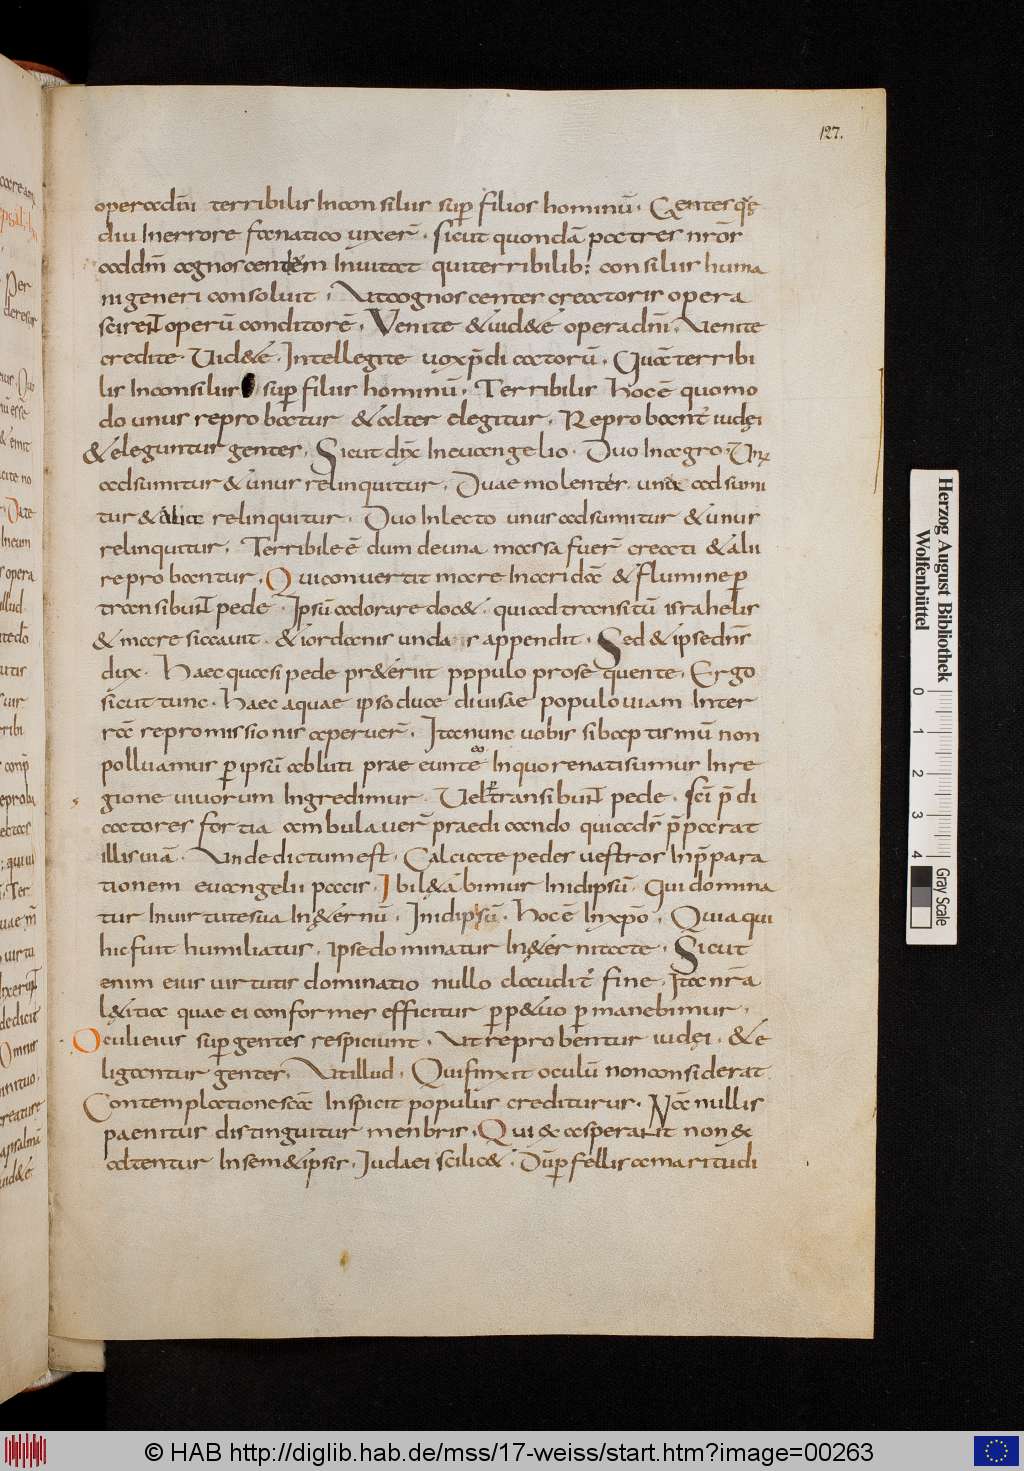 127.
opera dn̄i terribilis In consiliis sup̱ filios hominū. Gentes q̄s
diu In errore fanatico uixer̄. sicut quondā patres nr̄os
ad dn̄m agnoscentem Inuitat qui terribilib; consiliis huma
ni generi consoluit. Vt cognoscentes creatoris opera
scirent operū conditorē. Venite & uid&e opera dn̄i. Venite
credite. Uid&e. Intellegite uox p̄dicatorū. Quā terribi
lis In consiliis sup̱ filiis hominū. Terribilis hoc ē quomo
do unus reprobatur & alter elegitur. Reprobant᷑ iudęi
& eleguntur gentes. Sicut dix̄ In euangelio. Duo In agro. Un;
adsumitur & unus relinquitur. Duae molentes. una adsumi
tur & alia relinquitur. Duo In lecto unus adsumitur & unus
relinquitur. Terribile ē dum de una massa fuer̄ creati & alii
reprobantur. Qui conuertit mare In aridā & flumine p̱
transibunt pede. Ipsū adorare doc&. qui ad transitū israhelis
& mare siccauit. & iordanis unda r appendit. Sed & ipse dn̄s
dix̄. Haec quasi pede pr&eriit populo prosequente. Ergo
sicut tunc. haec aquae ipso duce diuisae populo uiam Inter
rā repromissionis aperuer̄. Ita nunc uobis si baptismū non
polluamus p̱ ipsū abluti praeeunte eo In quo renati sumus In re
gione uiuorum Ingredimur. Uel transibunt pede. sc̄i p̄di
catores fortia ambulauer̄ praedicando qui adr̄ p̄parat
illis uiā. Vnde dictum est. Calciate pedes uestros In p̄para
tionem euangelii pacis. Ibi l&ābimur In idipsū. Qui domina
tur In uirtute sua In &ernū. In idipsū. Hoc ē In xp̄o. Quia qui
hic fuit humiliatus. ipse dominatur In &ernitate. Sicut
enim eius uirtutis dominatio nullo claudit᷑ fine. Ita nr̄a
l&itia quae ei conformes efficitur p̱p&uo p̱manebimus.
Oculi eius sup̱ gentes respiciunt. Vt reprobentur iudęi. & e
ligantur gentes. Vt illud. Qui finxit oculū non considerat
Contemplationes eā Inspicit populus crediturus. Nā nullis
paenitus distinguitur menbris. Qui exasperant non ex
altentur In sem&ipsis. Iudaei scilic&. Dū p̱ fellis amaritudi
Herzog August Bibliothek
Wolfenbüttel
0 1 2 3 4
Gray Scale
© HAB http://diglib.hab.de/mss/17-weiss/start.htm?image=00263